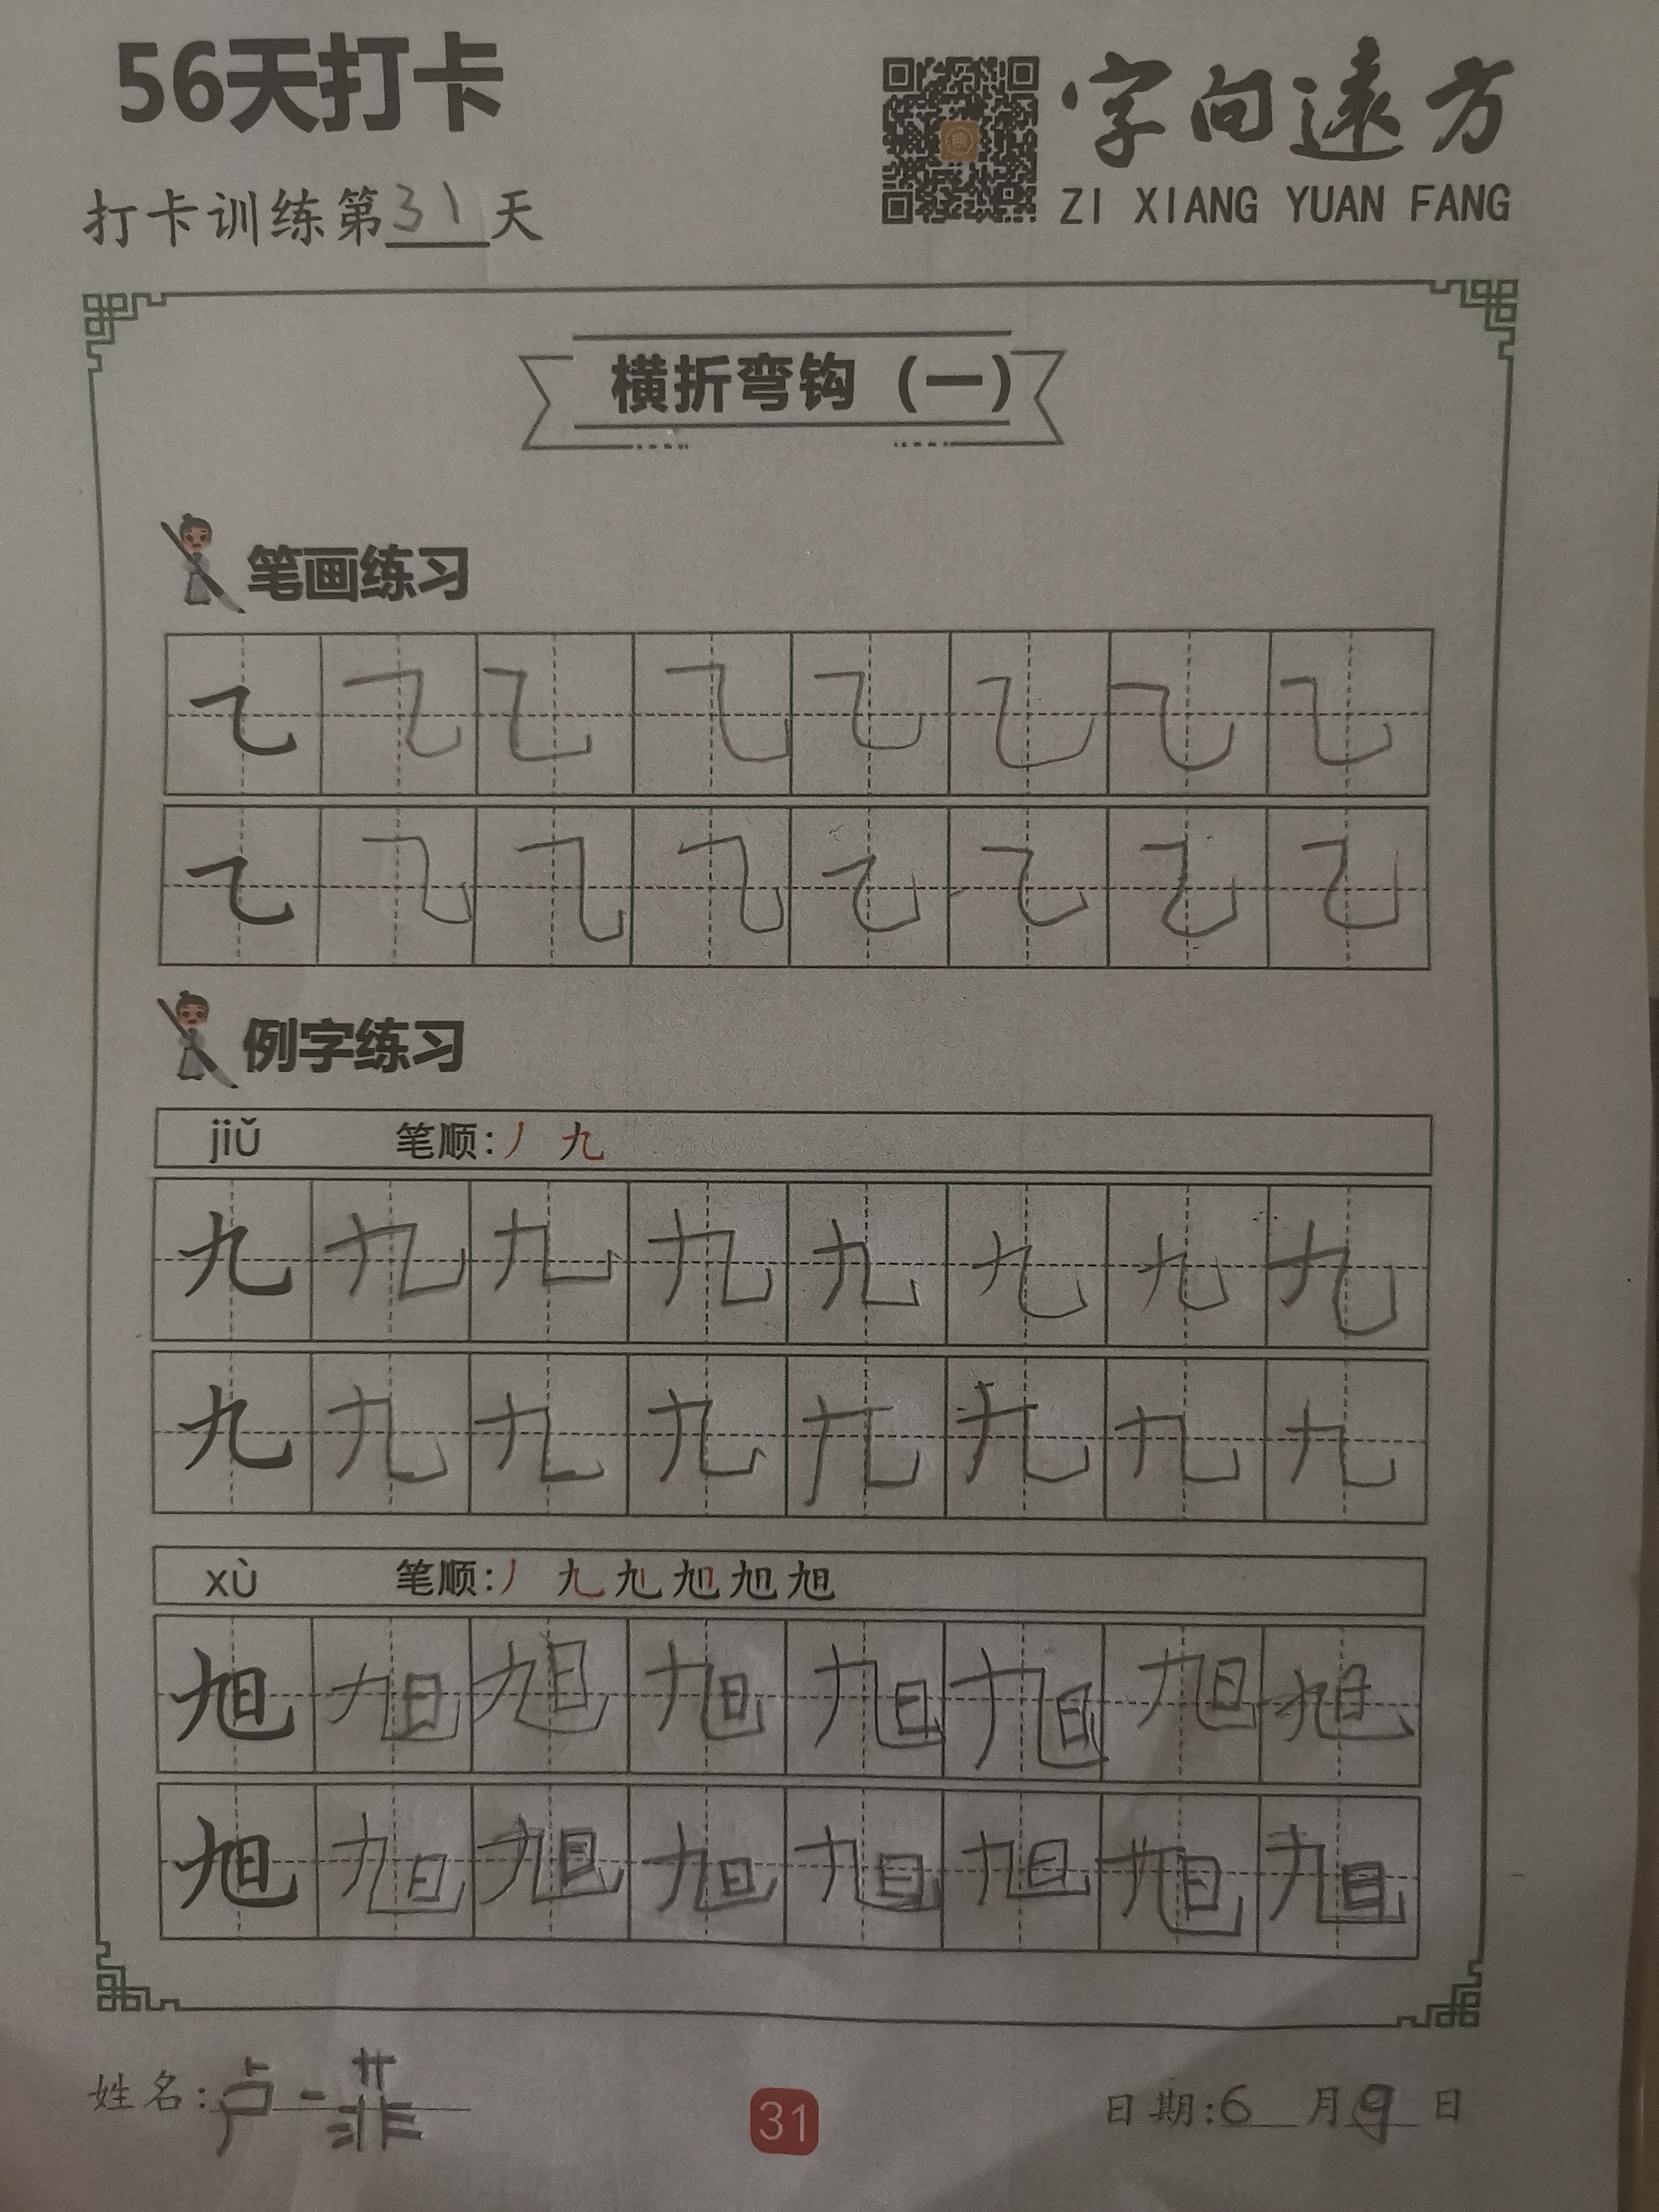 56天打卡
字向遠方
ZI XIANG YUAN FANG
打卡训练第31天
横折弯钩（一）
笔画练习
㇈ ㇈ ㇈ ㇈ ㇈ ㇈ ㇈ ㇈
㇈ ㇈ ㇈ ㇈ ㇈ ㇈ ㇈ ㇈
例字练习
jiǔ 笔顺：丿 九
九 九 九 九 九 九 九 九
九 九 九 九 九 九 九 九
xù 笔顺：丿 九 旭 旭 旭 旭
旭 旭 旭 旭 旭 旭 旭 旭
旭 旭 旭 旭 旭 旭 旭 旭
姓名：卢一菲
31
日期：6月9日